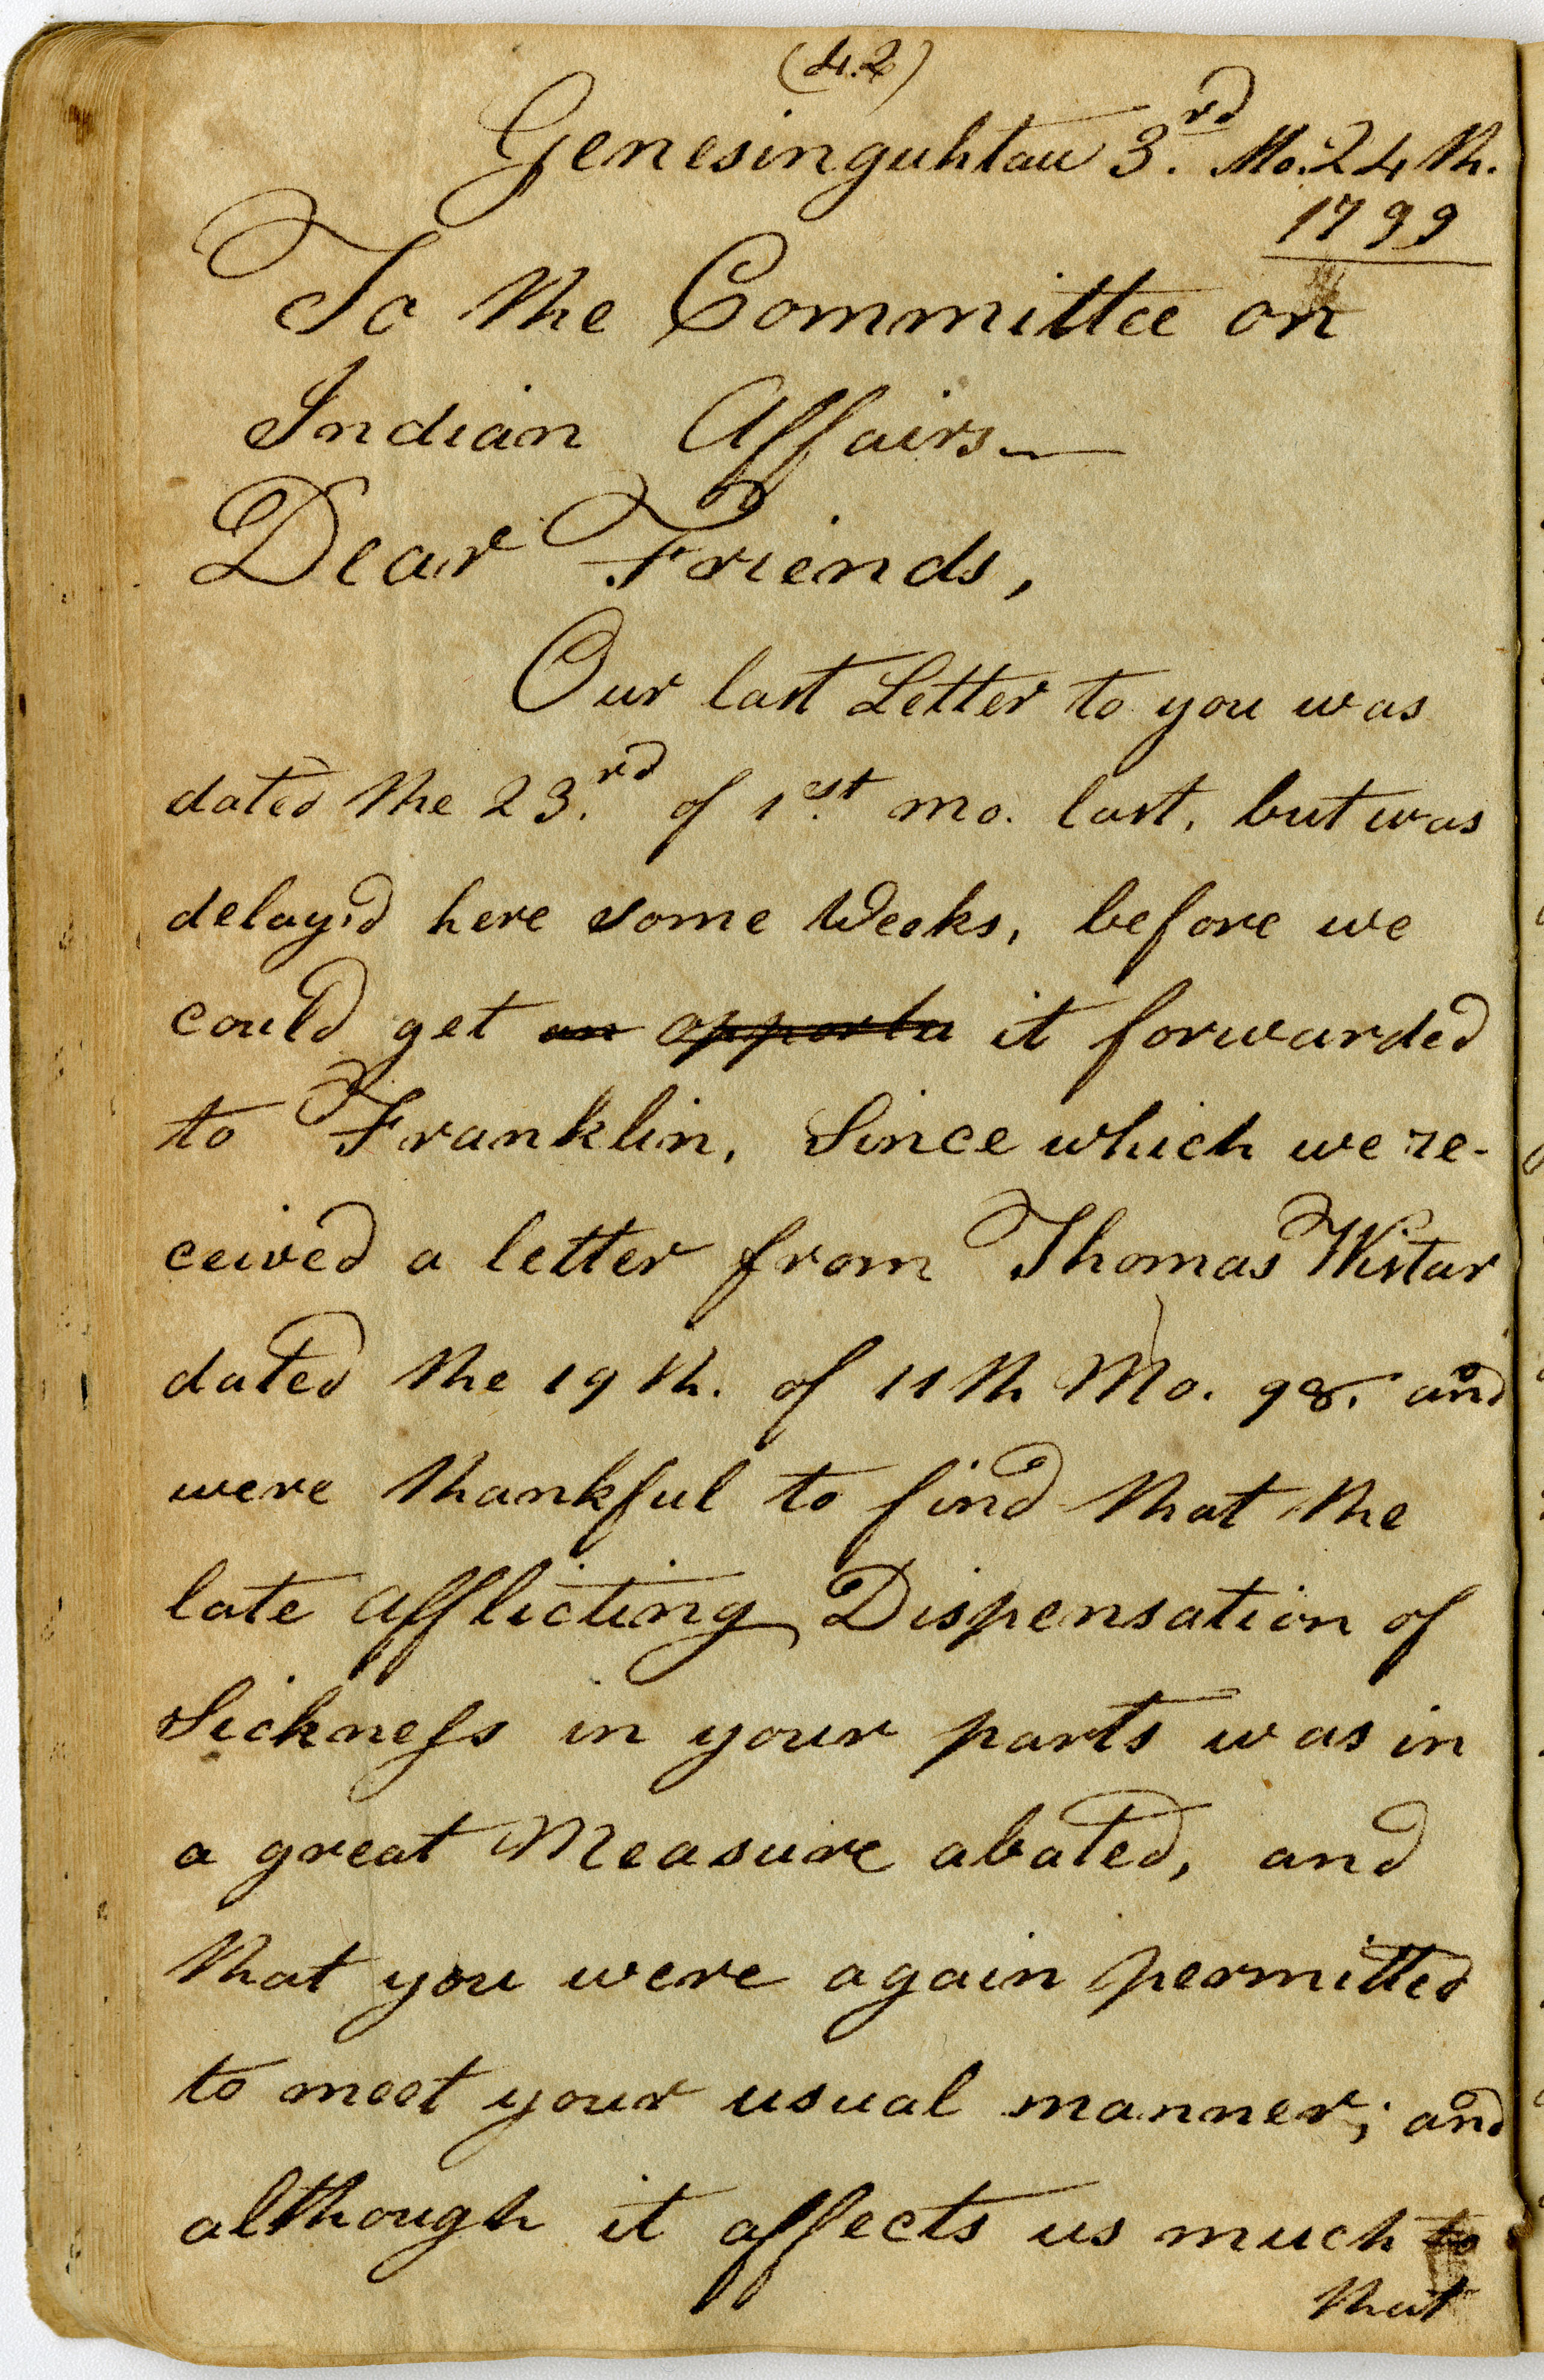 (42)
Genesinguhtau 3.rd Mo. 24th.
1799
To the Committee on
Indian Affairs—
Dear Friends,
Our last Letter to you was
dated the 23.rd of 1.st mo. last, but was
delay'd here some Weeks, before we
could get an opportu it forwarded
to Franklin, Since which we re-
ceived a letter from Thomas Wistar
dated the 19th. of 11th Mo. 98. and
were thankful to find that the
late afflicting Dispensation of
Sickness in your parts was in
a great Measure abated, and
that you were again permitted
to meet your usual manner; and
although it affects us much to
that